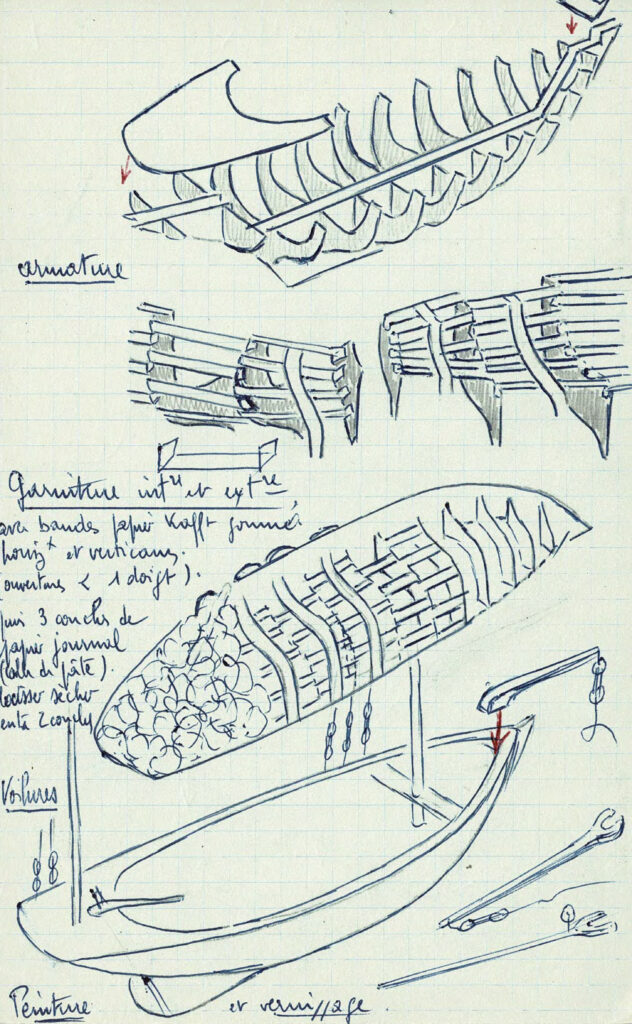 armature
Garniture int^re et ext^re,
avec bandes papier Kraft gommé
horiz^x et verticaux.
ouvertures < 1 doigt).
puis 3 couches de
papier journal
(colle de pâte).
laisser sécher
entre 2 couches
Voilures
Peinture et vernissage